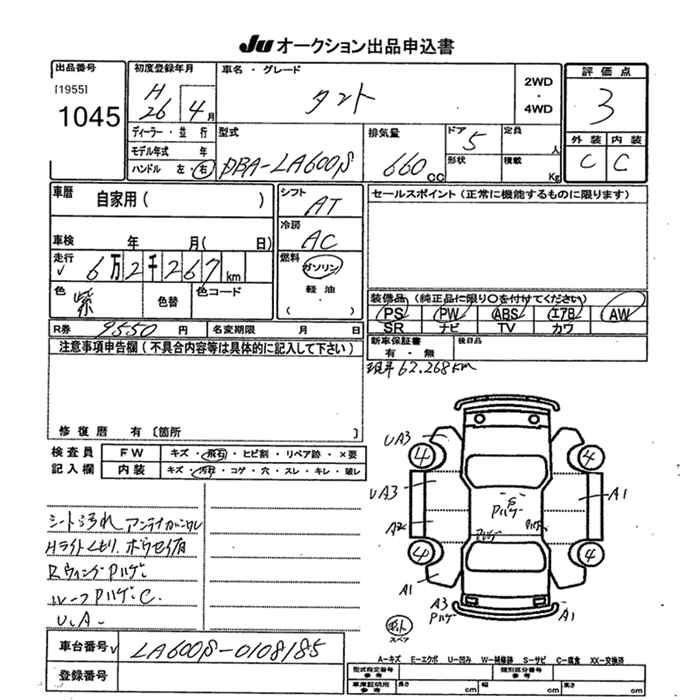 Ju オークション出品申込書
出品番号
[1955]
1045
初度登録年月
H
26 4月
ディーラー・並 行
モデル年式 年
ハンドル 左・右
車名・グレード
タント
2WD
・
4WD
評価点
3
外装 内装
C C
型式
DBA-LA600S
排気量
660 CC
ドア 5
形状
定員 人
積載 Kg
車暦
自家用( )
車検 年 月( 日)
走行
6万2千267km
色
紫
色替
色コード
シフト
AT
冷房
AC
燃料
ガソリン
軽・油
( )
セールスポイント(正常に機能するものに限ります)
装備品(純正品に限り〇を付けてください)
PS PW ABS エアB AW
SR ナビ TV カワ
R券 9550 円 名変期限 月 日
新車保証書
有・無
後日品
現車 62.268km
注意事項申告欄(不具合内容等は具体的に記入して下さい)
修復歴 有〔箇所 〕
検査員
記入欄
FW キズ・飛石・ヒビ割・リペア跡・×要
内装 キズ・汚れ・コゲ・穴・スレ・キレ・破レ
シート汚れ アンテナ
Hライトくもり. ボウセイ有
RウィングPハゲ.
ルーフPハゲ.C.
U.A.
UA3
4
4
UA3
S
Pハゲ
A1
A2
Pハゲ
Pハゲ
4
4
A1
A3
Pハゲ
A1
キット
スペア
車台番号 LA600S-0108185
登録番号
A-キズ E-エクボ U-凹み W-補修跡 S-サビ C-腐食 XX-交換済
型式指定番号
参考
類別区分番号
参考
車庫証明用
参考
長 cm 幅 cm 高 cm